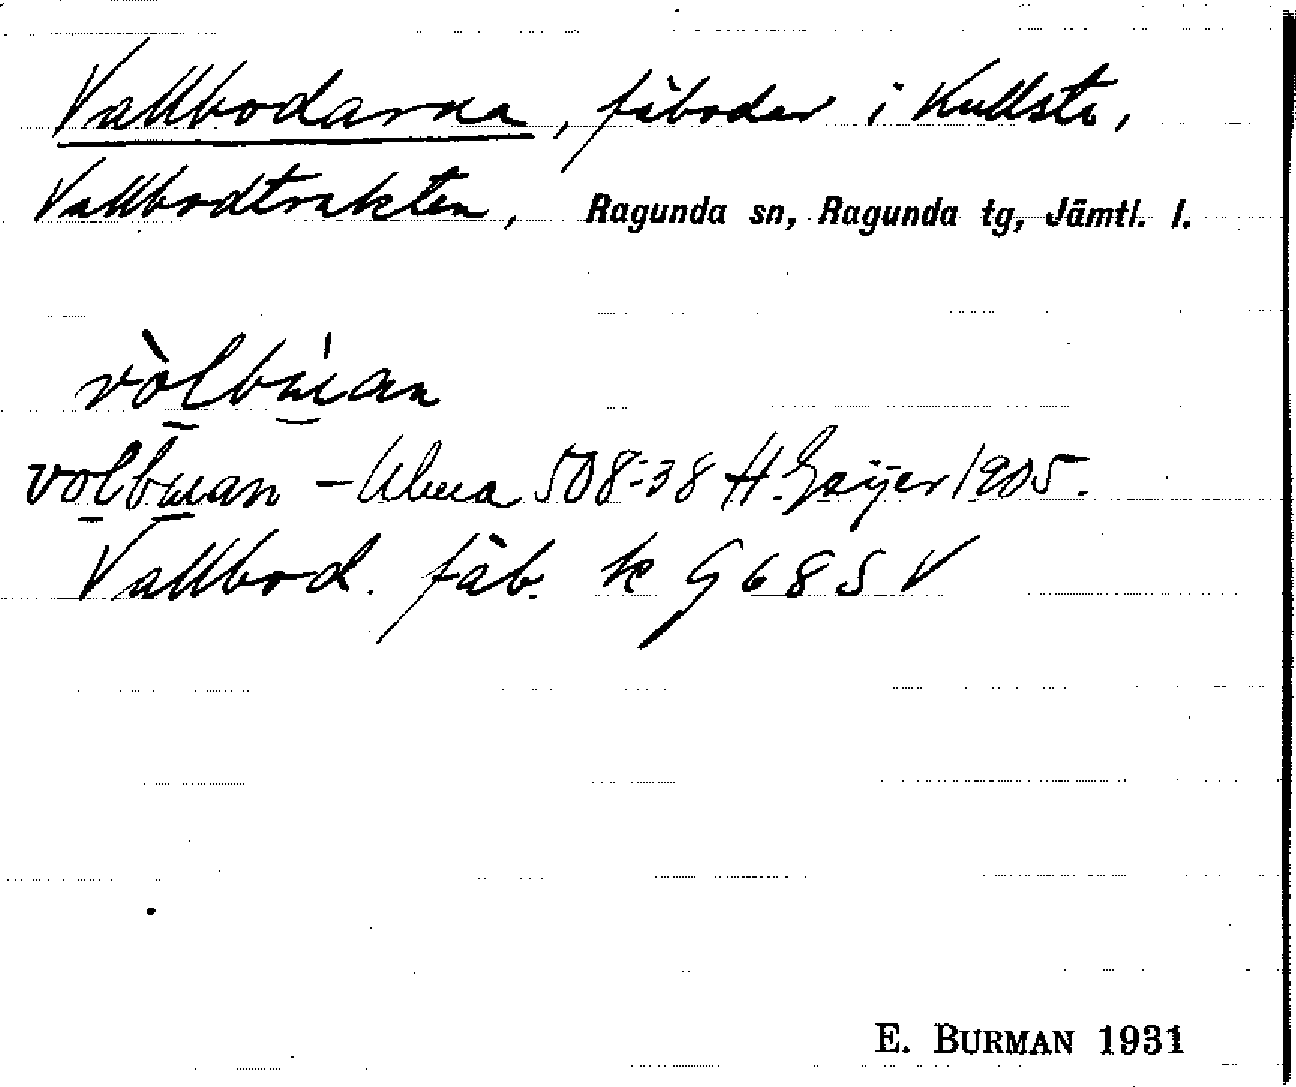 Vallbodarna, fäbodar i Kullsta,
Vallbodtrakten, Ragunda sn, Ragunda tg, Jämtl. l.
vòlbúan
volbuan – Ulma 508:38 H. Geijer 1905.
Vallbod. fäb. k G 68 S V
E. BURMAN 1931